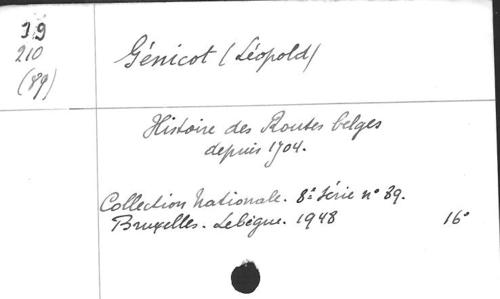 39
210
(89)
Génicot (Léopold)
Histoire des Routes belges
depuis 1704.
Collection Nationale. 8e Série n° 89.
Bruxelles. Lebègue. 1948 16°